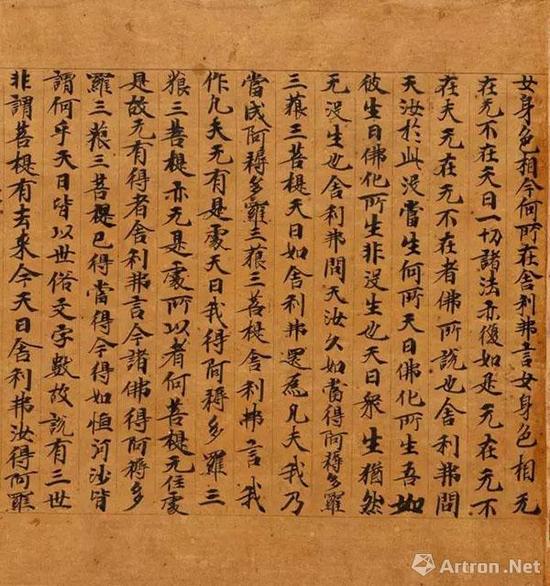 女身色相今何所在舍利弗言女身色相无
在无不在天曰一切諸法亦復如是无在无不
在夫无在无不在者佛所說也舍利弗問
天汝於此没當生何所天曰佛化所生吾如
彼生曰佛化所生非没生也天曰衆生猶然
无没生也舍利弗問天汝久如當得阿耨多羅
三藐三菩提天曰如舍利弗還為凡夫我乃
當成阿耨多羅三藐三菩提舍利弗言我
作凡夫无有是處天曰我得阿耨多羅三
藐三菩提亦无是處所以者何菩提无住處
是故无有得者舍利弗言今諸佛得阿耨多
羅三藐三菩提已得當得今得如恒河沙皆
謂何乎天曰皆以世俗文字數故說有三世
非謂菩提有去來今天曰舍利弗汝得阿羅
Artron.Net